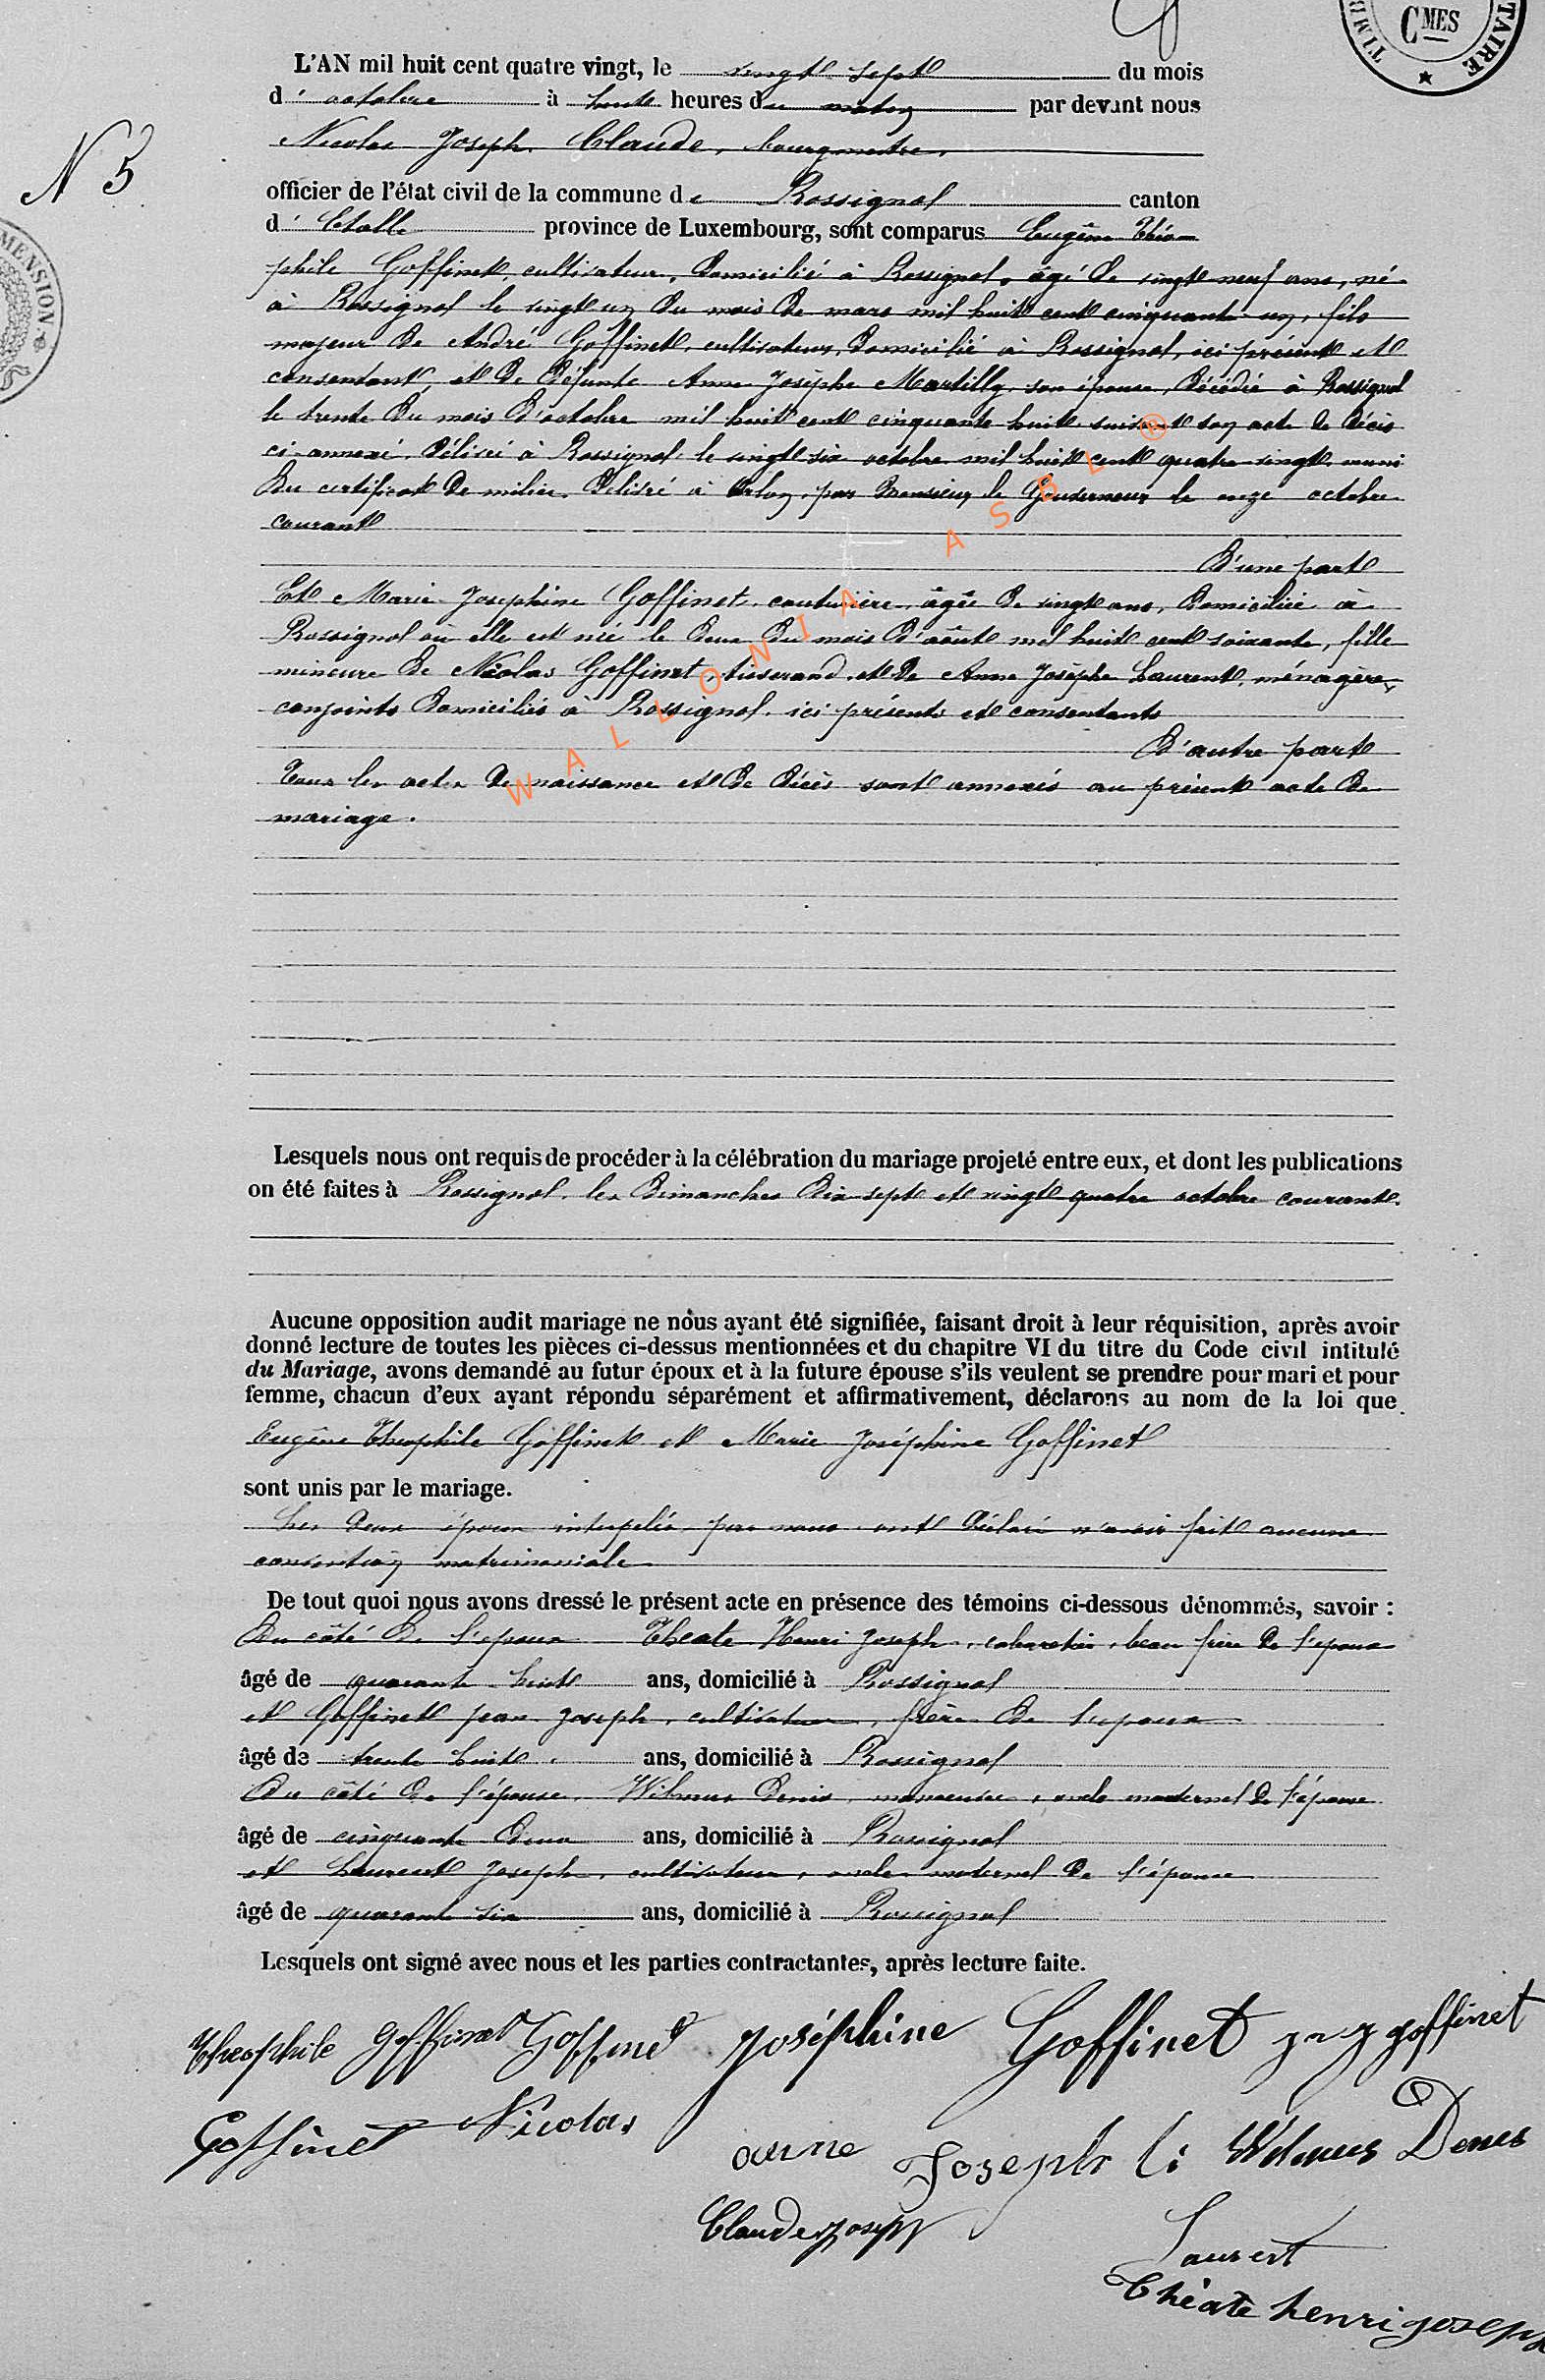 TIMB
TAIRE
CMES
★
MENSION.
N 5
L'AN mil huit cent quatre vingt, le vingt sept du mois
d'octobre à huit heures du matin par devant nous
Nicolas Joseph Claude, bourgmestre,
officier de l'état civil de la commune de Rossignol canton
d'Etalle province de Luxembourg, sont comparus Eugène Théo-
phile Goffinet, cultivateur, domicilié à Rossignol, âgé de vingt neuf ans, né
à Rossignol le vingt un du mois de mars mil huit cent cinquante un, fils
majeur de André Goffinet, cultivateur, domicilié à Rossignol, ici présent et
consentant, et de défunte Anne Josèphe Martilly, son épouse, décédée à Rossignol
le trente du mois d'octobre mil huit cent cinquante huit suivant son acte de décès
ci-annexé, délivré à Rossignol le vingt six octobre mil huit cent quatre vingt, muni
du certificat de milice, délivré à Arlon, par Monsieur le Gouverneur le onze octobre
courant
D'une part
Et Marie Joséphine Goffinet, couturière, âgée de vingt ans, domiciliée à
Rossignol où elle est née le deux du mois d'août mil huit cent soixante, fille
mineure de Nicolas Goffinet, tisserand, et de Anne Josèphe Laurent, ménagère,
conjoints domiciliés à Rossignol, ici présents et consentants
D'autre part
Tous les actes de naissance et de décès sont annexés au présent acte de
mariage.
WALLONIA ASBL ®
Lesquels nous ont requis de procéder à la célébration du mariage projeté entre eux, et dont les publications
on été faites à Rossignol, les dimanches dix sept et vingt quatre octobre courant.
Aucune opposition audit mariage ne nous ayant été signifiée, faisant droit à leur réquisition, après avoir
donné lecture de toutes les pièces ci-dessus mentionnées et du chapitre VI du titre du Code civil intitulé
du Mariage, avons demandé au futur époux et à la future épouse s'ils veulent se prendre pour mari et pour
femme, chacun d'eux ayant répondu séparément et affirmativement, déclarons au nom de la loi que
Eugène Théophile Goffinet et Marie Joséphine Goffinet
sont unis par le mariage.
Les deux époux interpelés par nous ont déclaré n'avoir fait aucune
convention matrimoniale
De tout quoi nous avons dressé le présent acte en présence des témoins ci-dessous dénommés, savoir :
Du côté de l'époux Théate Henri Joseph, cabaretier, beau frère de l'époux
âgé de quarante huit ans, domicilié à Rossignol
et Goffinet Jean Joseph, cultivateur, frère de l'époux
âgé de trente huit ans, domicilié à Rossignol
Du côté de l'épouse, Wilmus Denis, manoeuvre, oncle maternel de l'épouse
âgé de cinquante deux ans, domicilié à Rossignol
et Laurent Joseph, cultivateur, oncle maternel de l'épouse
âgé de quarante six ans, domicilié à Rossignol
Lesquels ont signé avec nous et les parties contractantes, après lecture faite.
Théophile Goffinet Goffinet Joséphine Goffinet J n J goffinet
Goffinet Nicolas
anne Joseph Wilmus Denis
Claude Joseph
Laurent
Théate henri joseph